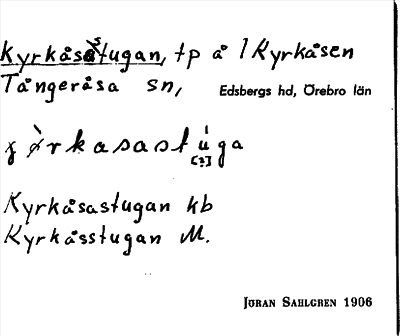 Kyrkåsstugan, tp å 1 Kyrkåsen
Tångeråsa sn, Edsbergs hd, Örebro län
ɣø̀rkasastúga
[?]
Kyrkåsastugan kb
Kyrkåsstugan M.
JÖRAN SAHLGREN 1906